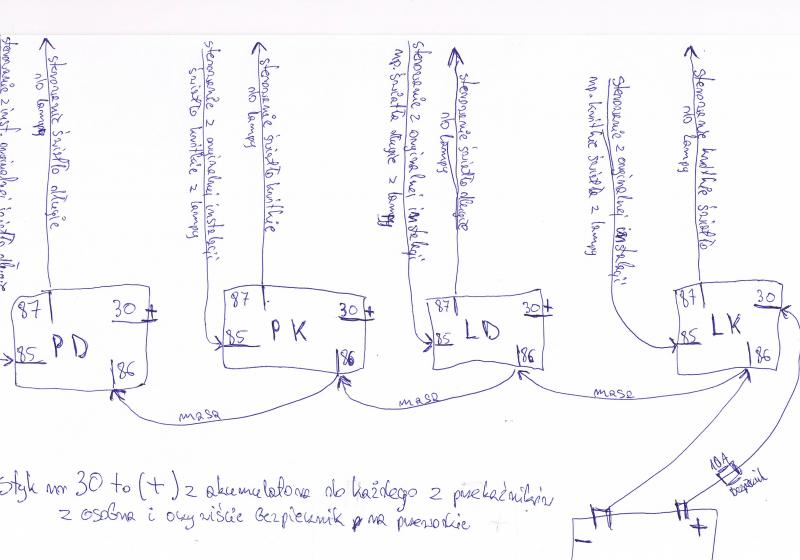 sterowanie z inst. oryginalnej światło długie
sterowanie światło długie
do lampy
sterowanie z oryginalnej instalacji
światło krótkie z lampy
sterowanie światło krótkie
do lampy
sterowanie z oryginalnej instalacji
np. światło długie z lampy
sterowanie światło długie
do lampy
sterowanie z oryginalnej instalacji
np. krótkie światło z lampy
sterowanie krótkie światło
do lampy
87 30 +
85 PD 86
87 30 +
85 PK 86
87 30 +
85 LD 86
87 30
85 LK 86
masa
masa
masa
10A
bezpiecznik
Styk nr 30 to (+) z akumulatora do każdego z przekaźników
z osobna i oczywiście bezpiecznik na przewodzie
- +